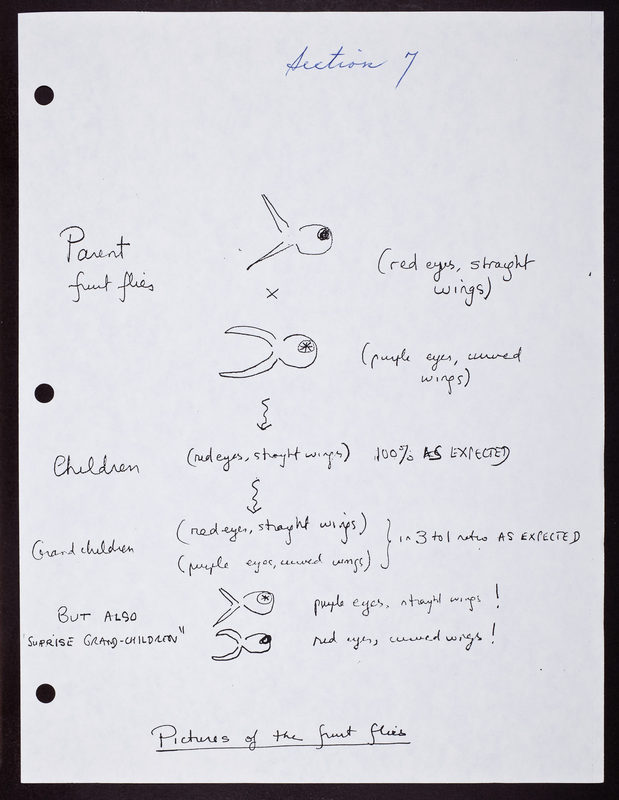 Section 7
Parent
fruit flies
(red eyes, straight
wings)
×
(purple eyes, curved
wings)
Children
(red eyes, straight wings) 100% AS EXPECTED
Grandchildren
(red eyes, straight wings)
(purple eyes, curved wings)
in 3 to 1 ratio AS EXPECTED
BUT ALSO
"SUPRISE GRAND-CHILDREN"
purple eyes, straight wings !
red eyes, curved wings !
Pictures of the fruit flies